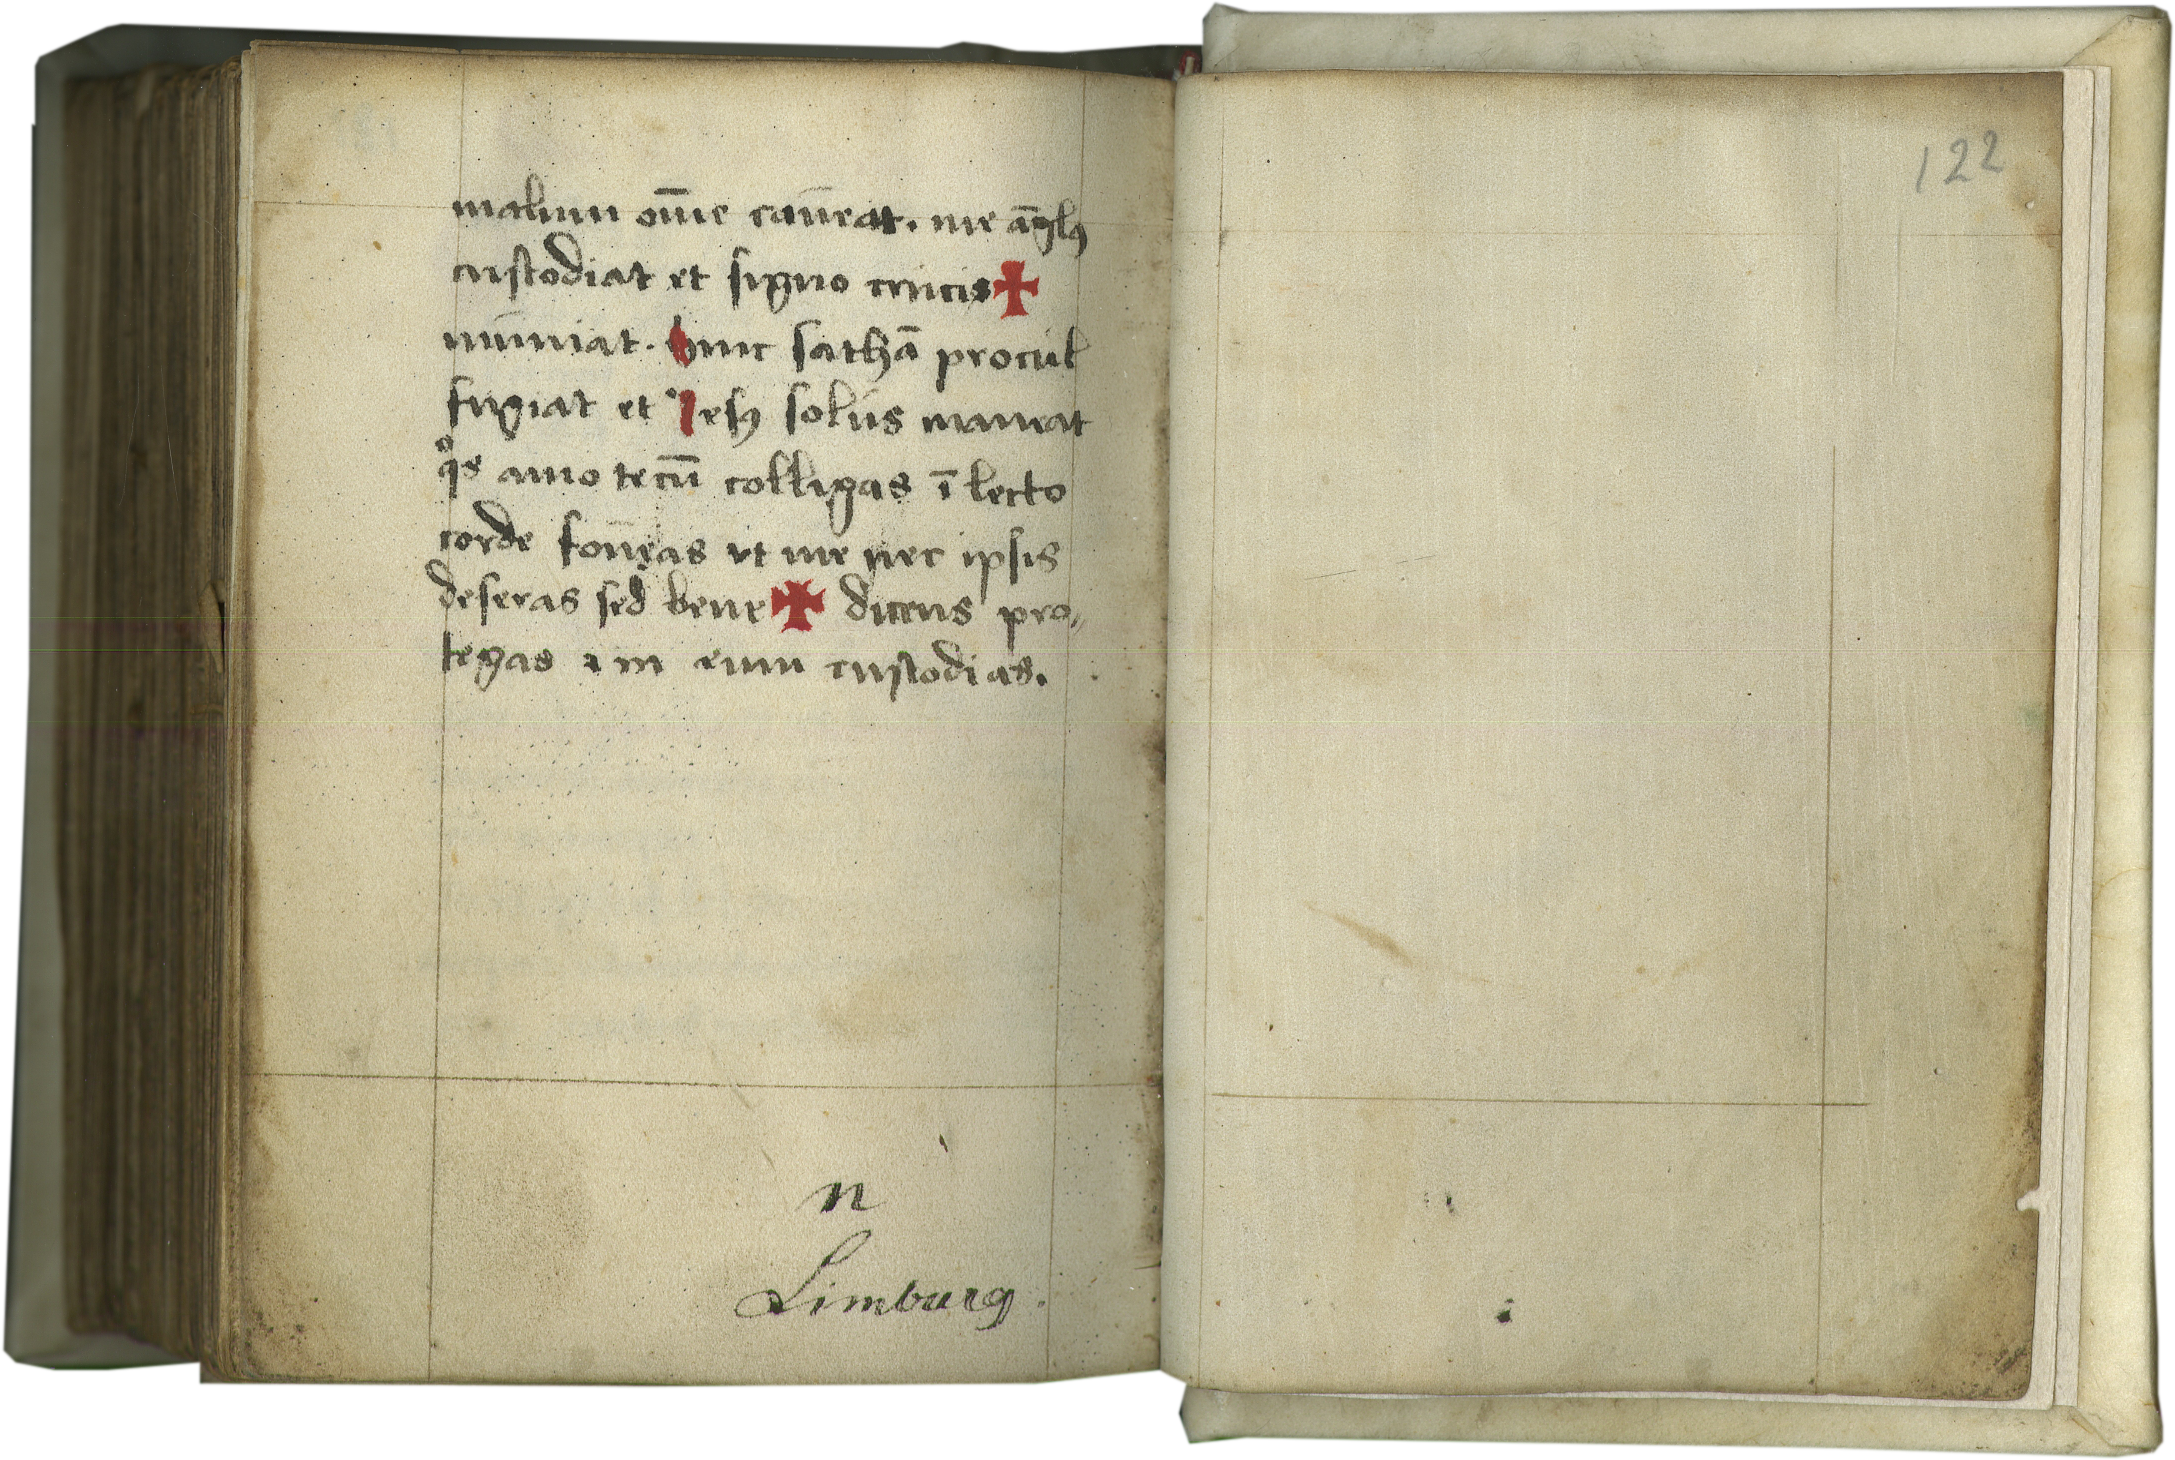 malum om̄e caūeat. me āglꝰ
custodiat et signo crucis ✠
muniat. hinc sathā procul
fugiat et Iesꝰ solus maneat
qͦs amo tecū colligas ī lecto
corde foūeas ut me nec ipsis
deseras sed bene ✠ dicens pro„
tegas ⁊ in eum custodias.
n
Limburg.
122